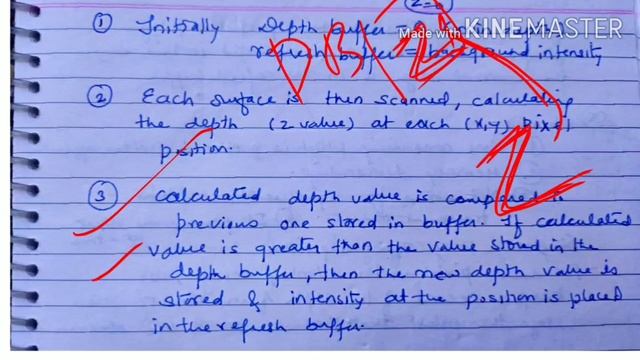 (z=0)
Made with KINEMASTER
① Initially Depth buffer = 0
refresh buffer = background intensity
② Each surface is then scanned, calculating
the depth (z value) at each (x,y) pixel
position.
③ Calculated depth value is compared to
previous one stored in buffer. If calculated
value is greater than the value stored in the
depth buffer, then the new depth value is
stored & intensity at the position is placed
in the refresh buffer.
DB
Z